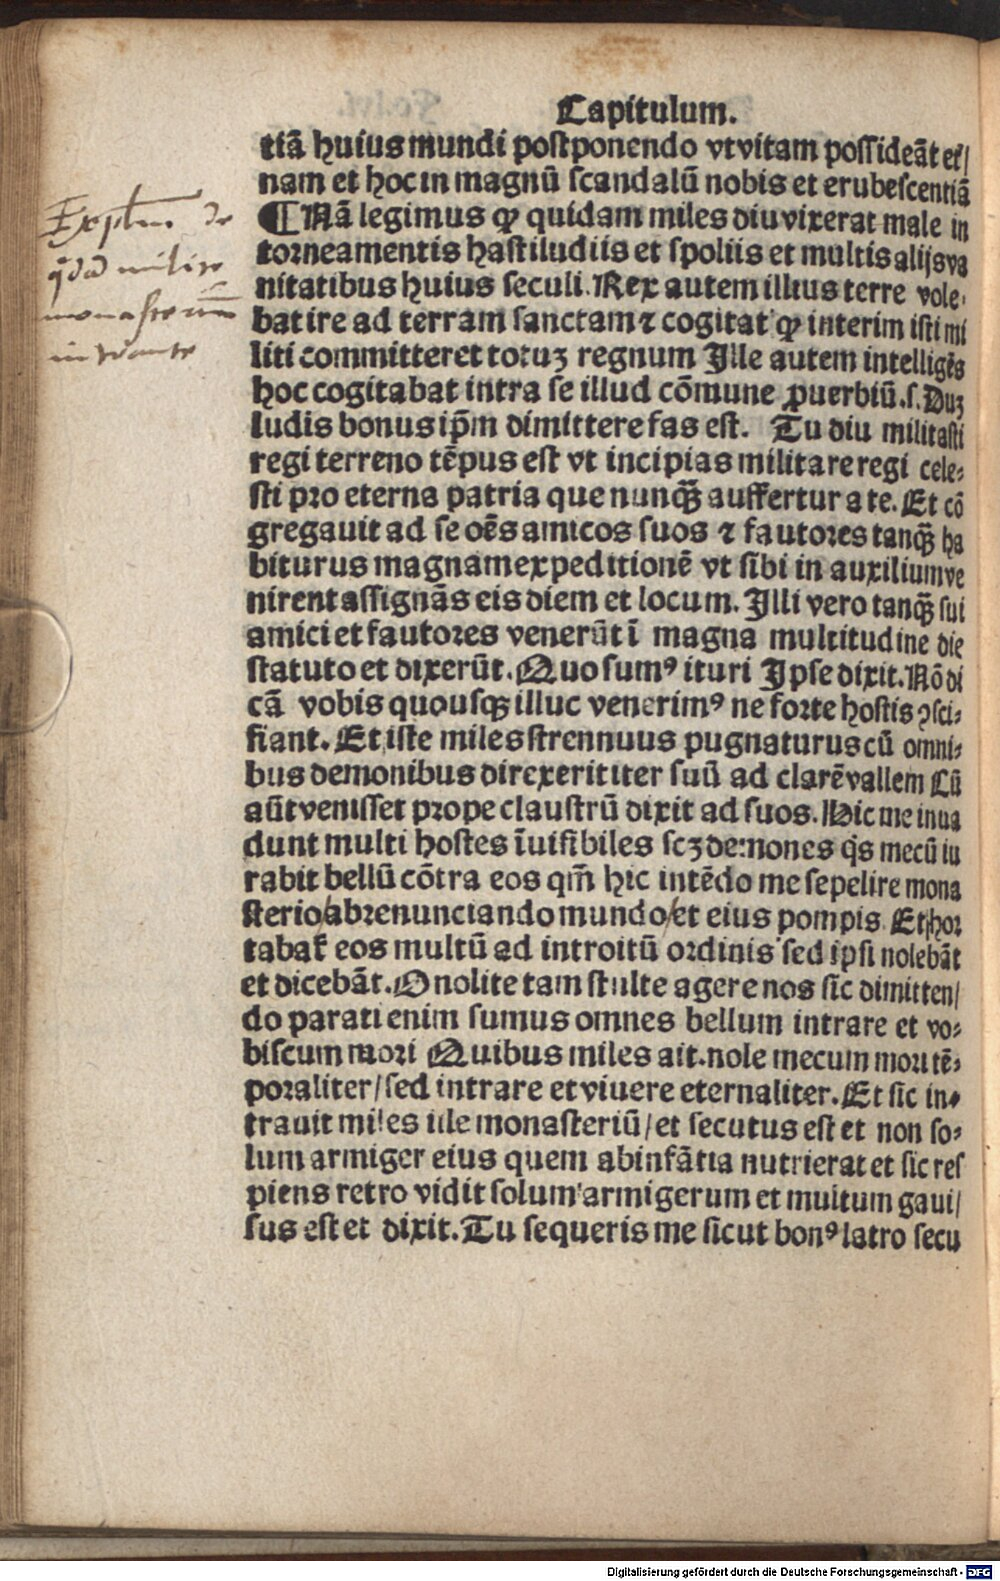 Capitulum.
tiā huius mundi postponendo vt vitam possideāt et/
nam et hoc in magnū scandalū nobis et erubescentiā
¶ Nā legimus ꝙ quidam miles diu vixerat male in
torneamentis hastiludiis et spoliis et multis alijs va
nitatibus huius seculi. Rex autem illius terre vole⸗
bat ire ad terram sanctam ⁊ cogitat ꝙ interim isti mi
liti committeret totuꝫ regnum Ille autem intelligēs
hoc cogitabat intra se illud cōmune ꝓuerbiū.s. Duꝫ
ludis bonus ip̄m dimittere fas est. Tu diu militasti
regi terreno tēpus est vt incipias militare regi cele⸗
sti pro eterna patria que nunqꝫ auffertur a te. Et cō
gregauit ad se oēs amicos suos ⁊ fautores tanqꝫ ha
biturus magnam expeditionē vt sibi in auxilium ve
nirent assignās eis diem et locum. Illi vero tanqꝫ sui
amici et fautores venerūt ī magna multitudine die
statuto et dixerūt. Quo sumꝰ ituri Ipse dixit. Nō di
cā vobis quousqꝫ illuc venerimꝰ ne forte hostis ꝯsci⸗
fiant. Et iste miles strennuus pugnaturus cū omni⸗
bus demonibus direxerit iter suū ad clarēvallem Cū
aūt venisset prope claustrū dixit ad suos. Hic me inua
dunt multi hostes īuisibiles scꝫ demones q̇s mecū iu
rabit bellū cōtra eos qm̄ hic intēdo me sepelire mona
sterio/abrenunciando mundo/et eius pompis. Et hor
tabat̄ eos multū ad introitū ordinis sed ipsi nolebāt
et dicebāt. O nolite tam stulte agere nos sic dimitten/
do parati enim sumus omnes bellum intrare et vo⸗
biscum mori Quibus miles ait. nole mecum mori tē⸗
poraliter/sed intrare et viuere eternaliter. Et sic in⸗
trauit miles ille monasteriū/et secutus est et non so⸗
lum armiger eius quem ab infātia nutrierat et sic res
piens retro vidit solum armigerum et multum gaui/
sus est et dixit. Tu sequeris me sicut bonꝰ latro secu
Explm̄ de
q̄dā milite
monasterium
intrante
Digitalisierung gefördert durch die Deutsche Forschungsgemeinschaft - DFG